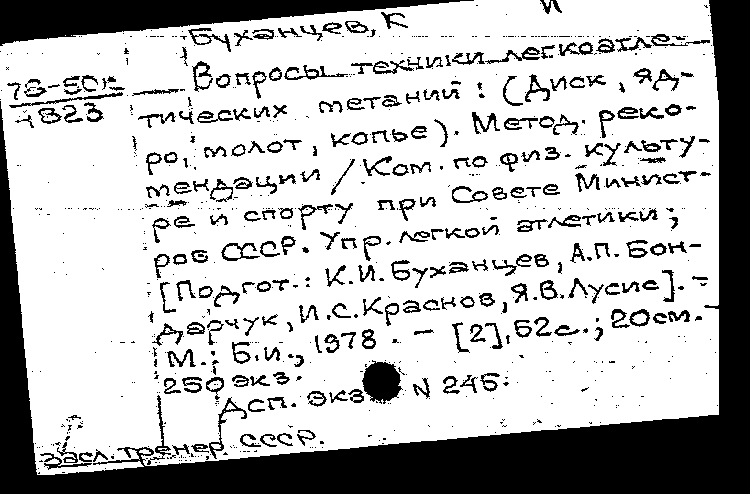 И
Буханцев, К
78-50к
4823
Вопросы техники легкоатле-
тических метаний: (Диск, яд-
ро, молот, копье). Метод. реко-
мендации / Ком. по физ. культу-
ре и спорту при Совете Минист-
ров СССР. Упр. легкой атлетики;
[Подгот.: К.И. Буханцев, А.П. Бон-
дарчук, И.С. Краснов, Я.В. Лусис]. -
М.: Б.и., 1978. - [2], 62с.; 20см. -
250 экз.
Дсп. экз N 245.
Засл. тренер СССР.